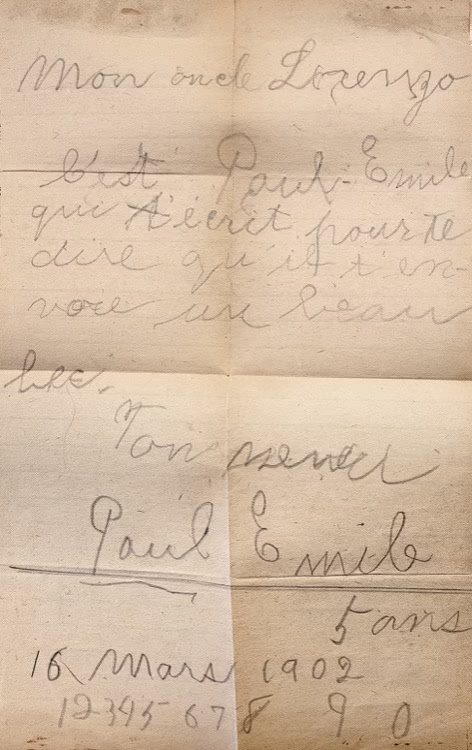 Mon oncle Lorenzo
C'est Paul-Emile
qui t'écrit pour te
dire qu'il t'en-
voie un beau
bec.
Ton neveu
Paul Emile
5 ans
16 Mars 1902
12345 67 8 9 0